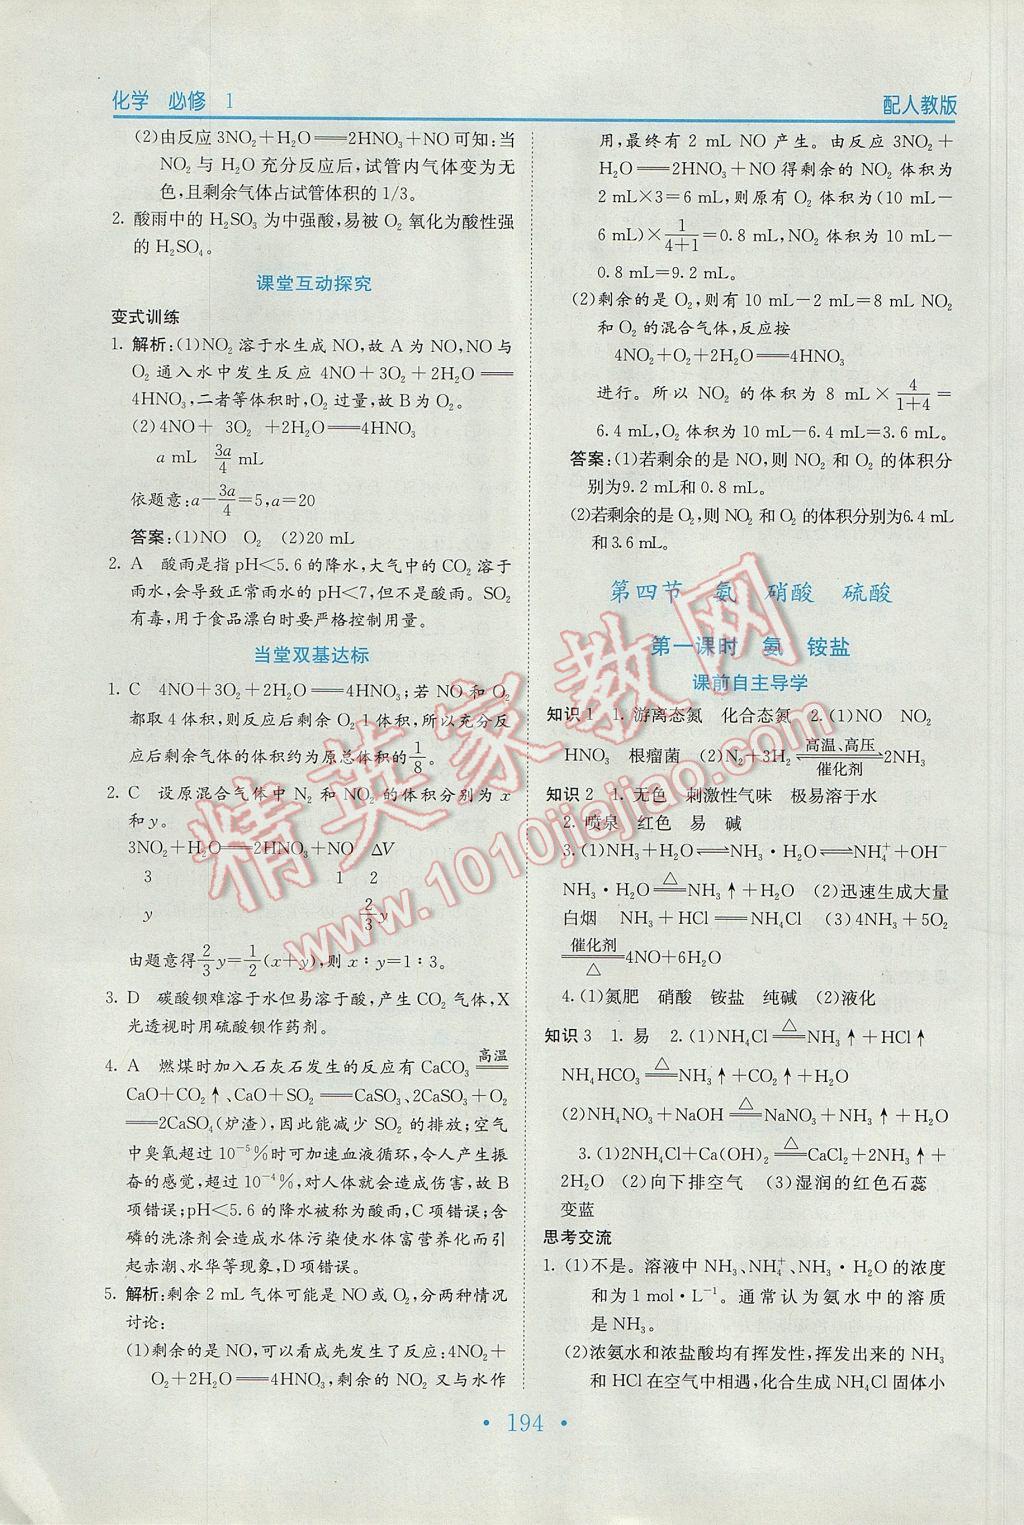 化学 必修 1
配人教版
(2)由反应3NO₂+H₂O══2HNO₃+NO可知:当
NO₂与H₂O充分反应后,试管内气体变为无
色,且剩余气体占试管体积的1/3。
2. 酸雨中的H₂SO₃为中强酸,易被O₂氧化为酸性强
的H₂SO₄。
课堂互动探究
变式训练
1. 解析:(1)NO₂溶于水生成NO,故A为NO,NO与
O₂通入水中发生反应4NO+3O₂+2H₂O══
4HNO₃,二者等体积时,O₂过量,故B为O₂。
(2)4NO+ 3O₂ +2H₂O══4HNO₃
a mL 3a/4 mL
依题意:a-3a/4=5,a=20
答案:(1)NO O₂ (2)20 mL
2. A 酸雨是指pH<5.6的降水,大气中的CO₂溶于
雨水,会导致正常雨水的pH<7,但不是酸雨。SO₂
有毒,用于食品漂白时要严格控制用量。
当堂双基达标
1. C 4NO+3O₂+2H₂O══4HNO₃;若NO和O₂
都取4体积,则反应后剩余O₂1体积,所以充分反
应后剩余气体的体积约为原总体积的1/8。
2. C 设原混合气体中N₂和NO₂的体积分别为x
和y。
3NO₂+H₂O══2HNO₃+NO ΔV
3 1 2
y 2/3 y
由题意得2/3 y=1/2(x+y),则x∶y=1∶3。
3. D 碳酸钡难溶于水但易溶于酸,产生CO₂气体,X
光透视时用硫酸钡作药剂。
4. A 燃煤时加入石灰石发生的反应有CaCO₃ ══高温
CaO+CO₂↑、CaO+SO₂══CaSO₃、2CaSO₃+O₂
══2CaSO₄(炉渣),因此能减少SO₂的排放;空气
中臭氧超过10⁻⁵%时可加速血液循环,令人产生振
奋的感觉,超过10⁻⁴%,对人体就会造成伤害,故B
项错误;pH<5.6的降水被称为酸雨,C项错误;含
磷的洗涤剂会造成水体污染使水体富营养化而引
起赤潮、水华等现象,D项错误。
5. 解析:剩余2 mL气体可能是NO或O₂,分两种情况
讨论:
(1)剩余的是NO,可以看成先发生了反应:4NO₂+
O₂+2H₂O══4HNO₃,剩余的NO₂又与水作
用,最终有2 mL NO产生。由反应3NO₂+
H₂O══2HNO₃+NO得剩余的NO₂体积为
2 mL×3=6 mL,则原有O₂体积为(10 mL-
6 mL)×1/(4+1)=0.8 mL,NO₂体积为10 mL-
0.8 mL=9.2 mL。
(2)剩余的是O₂,则有10 mL-2 mL=8 mL NO₂
和O₂的混合气体,反应按
4NO₂+O₂+2H₂O══4HNO₃
进行。所以NO₂的体积为8 mL×4/(1+4)=
6.4 mL,O₂体积为10 mL-6.4 mL=3.6 mL。
答案:(1)若剩余的是NO,则NO₂和O₂的体积分
别为9.2 mL和0.8 mL。
(2)若剩余的是O₂,则NO₂和O₂的体积分别为6.4 mL
和3.6 mL。
第四节 氨 硝酸 硫酸
第一课时 氨 铵盐
课前自主导学
知识1 1. 游离态氮 化合态氮 2. (1)NO NO₂
HNO₃ 根瘤菌 (2)N₂+3H₂ 高温、高压⇌催化剂 2NH₃
知识2 1. 无色 刺激性气味 极易溶于水
2. 喷泉 红色 易 碱
3. (1)NH₃+H₂O⇌NH₃·H₂O⇌NH₄⁺+OH⁻
NH₃·H₂O══△NH₃↑+H₂O (2)迅速生成大量
白烟 NH₃+HCl══NH₄Cl (3)4NH₃+5O₂
催化剂══△4NO+6H₂O
4. (1)氮肥 硝酸 铵盐 纯碱 (2)液化
知识3 1. 易 2. (1)NH₄Cl══△NH₃↑+HCl↑
NH₄HCO₃══△NH₃↑+CO₂↑+H₂O
(2)NH₄NO₃+NaOH══△NaNO₃+NH₃↑+H₂O
3. (1)2NH₄Cl+Ca(OH)₂══△CaCl₂+2NH₃↑+
2H₂O (2)向下排空气 (3)湿润的红色石蕊
变蓝
思考交流
1. (1)不是。溶液中NH₃、NH₄⁺、NH₃·H₂O的浓度
和为1 mol·L⁻¹。通常认为氨水中的溶质
是NH₃。
(2)浓氨水和浓盐酸均有挥发性,挥发出来的NH₃
和HCl在空气中相遇,化合生成NH₄Cl固体小
• 194 •
精英家教网
www.1010jiajiao.com